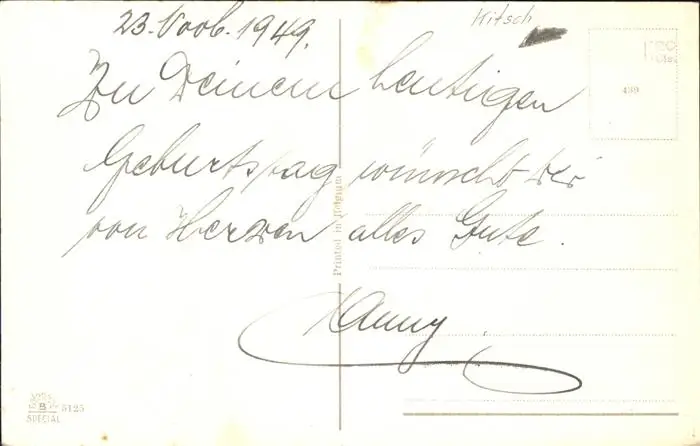 23. Novb. 1949.
Kitsch
Zu Deinem heutigen
Geburtstag wünscht Dir
von Herzen alles Gute.
Hanny
Printed in Belgium
439
B 5125
SPECIAL